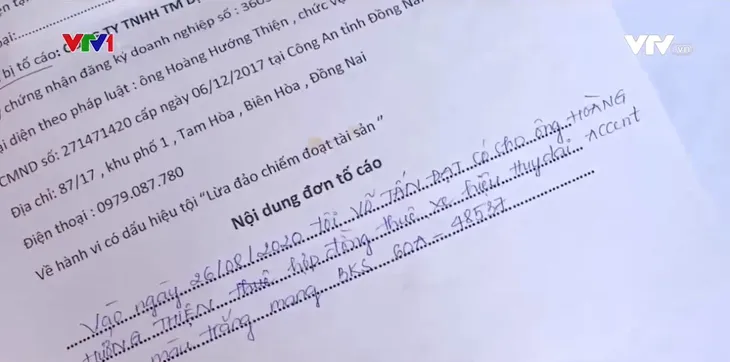 VTV1
VTV.vn
bị tố cáo: TNHH TM
chứng nhận đăng ký doanh nghiệp số : 3603
đại diện theo pháp luật : ông Hoàng Hướng Thiện , chức vụ
CMND số: 271471420 cấp ngày 06/12/2017 tại Công An tỉnh Đồng Nai
Địa chỉ: 87/17 , khu phố 1 , Tam Hòa , Biên Hòa , Đồng Nai
Điện thoại : 0979.087.780
Về hành vi có dấu hiệu tội “Lừa đảo chiếm đoạt tài sản ”
Nội dung đơn tố cáo
Vào ngày 26/08/2020 tôi VÕ TẤN ĐẠT có cho ông HOÀNG
HƯỚNG THIỆN thuê hợp đồng thuê xe hiệu Huyndai Accent
màu trắng mang BKS 60A - 48537